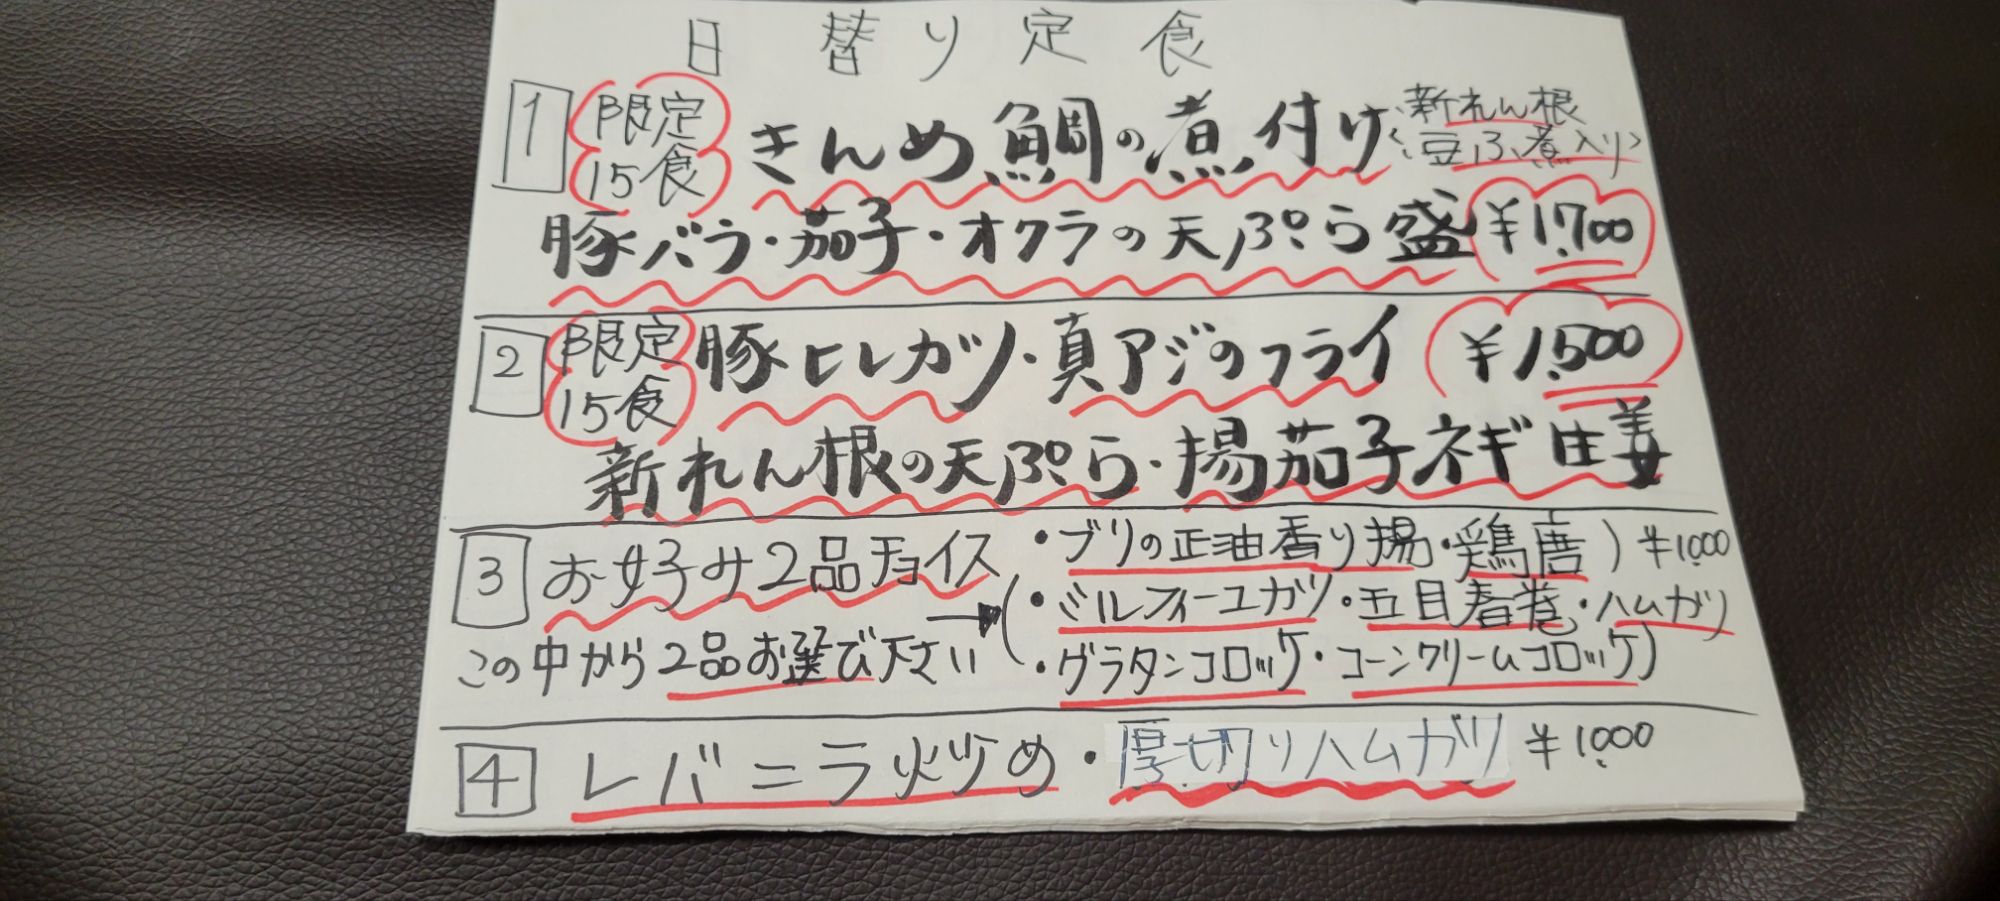 日替り定食
1 限定15食 きんめ鯛の煮付け 〈新れん根豆ふ煮入り〉
豚バラ・茄子・オクラの天ぷら盛 ¥1,700
2 限定15食 豚ヒレカツ・真アジのフライ ¥1,500
新れん根の天ぷら・揚茄子ネギ生姜
3 お好み2品チョイス
この中から2品お選び下さい→
(・ブリの正油香り揚・鶏唐) ¥1,000
・ミルフィーユカツ・五目春巻・ハムカツ
・グラタンコロッケ・コーンクリームコロッケ)
4 レバニラ炒め・厚切りハムカツ ¥1,000